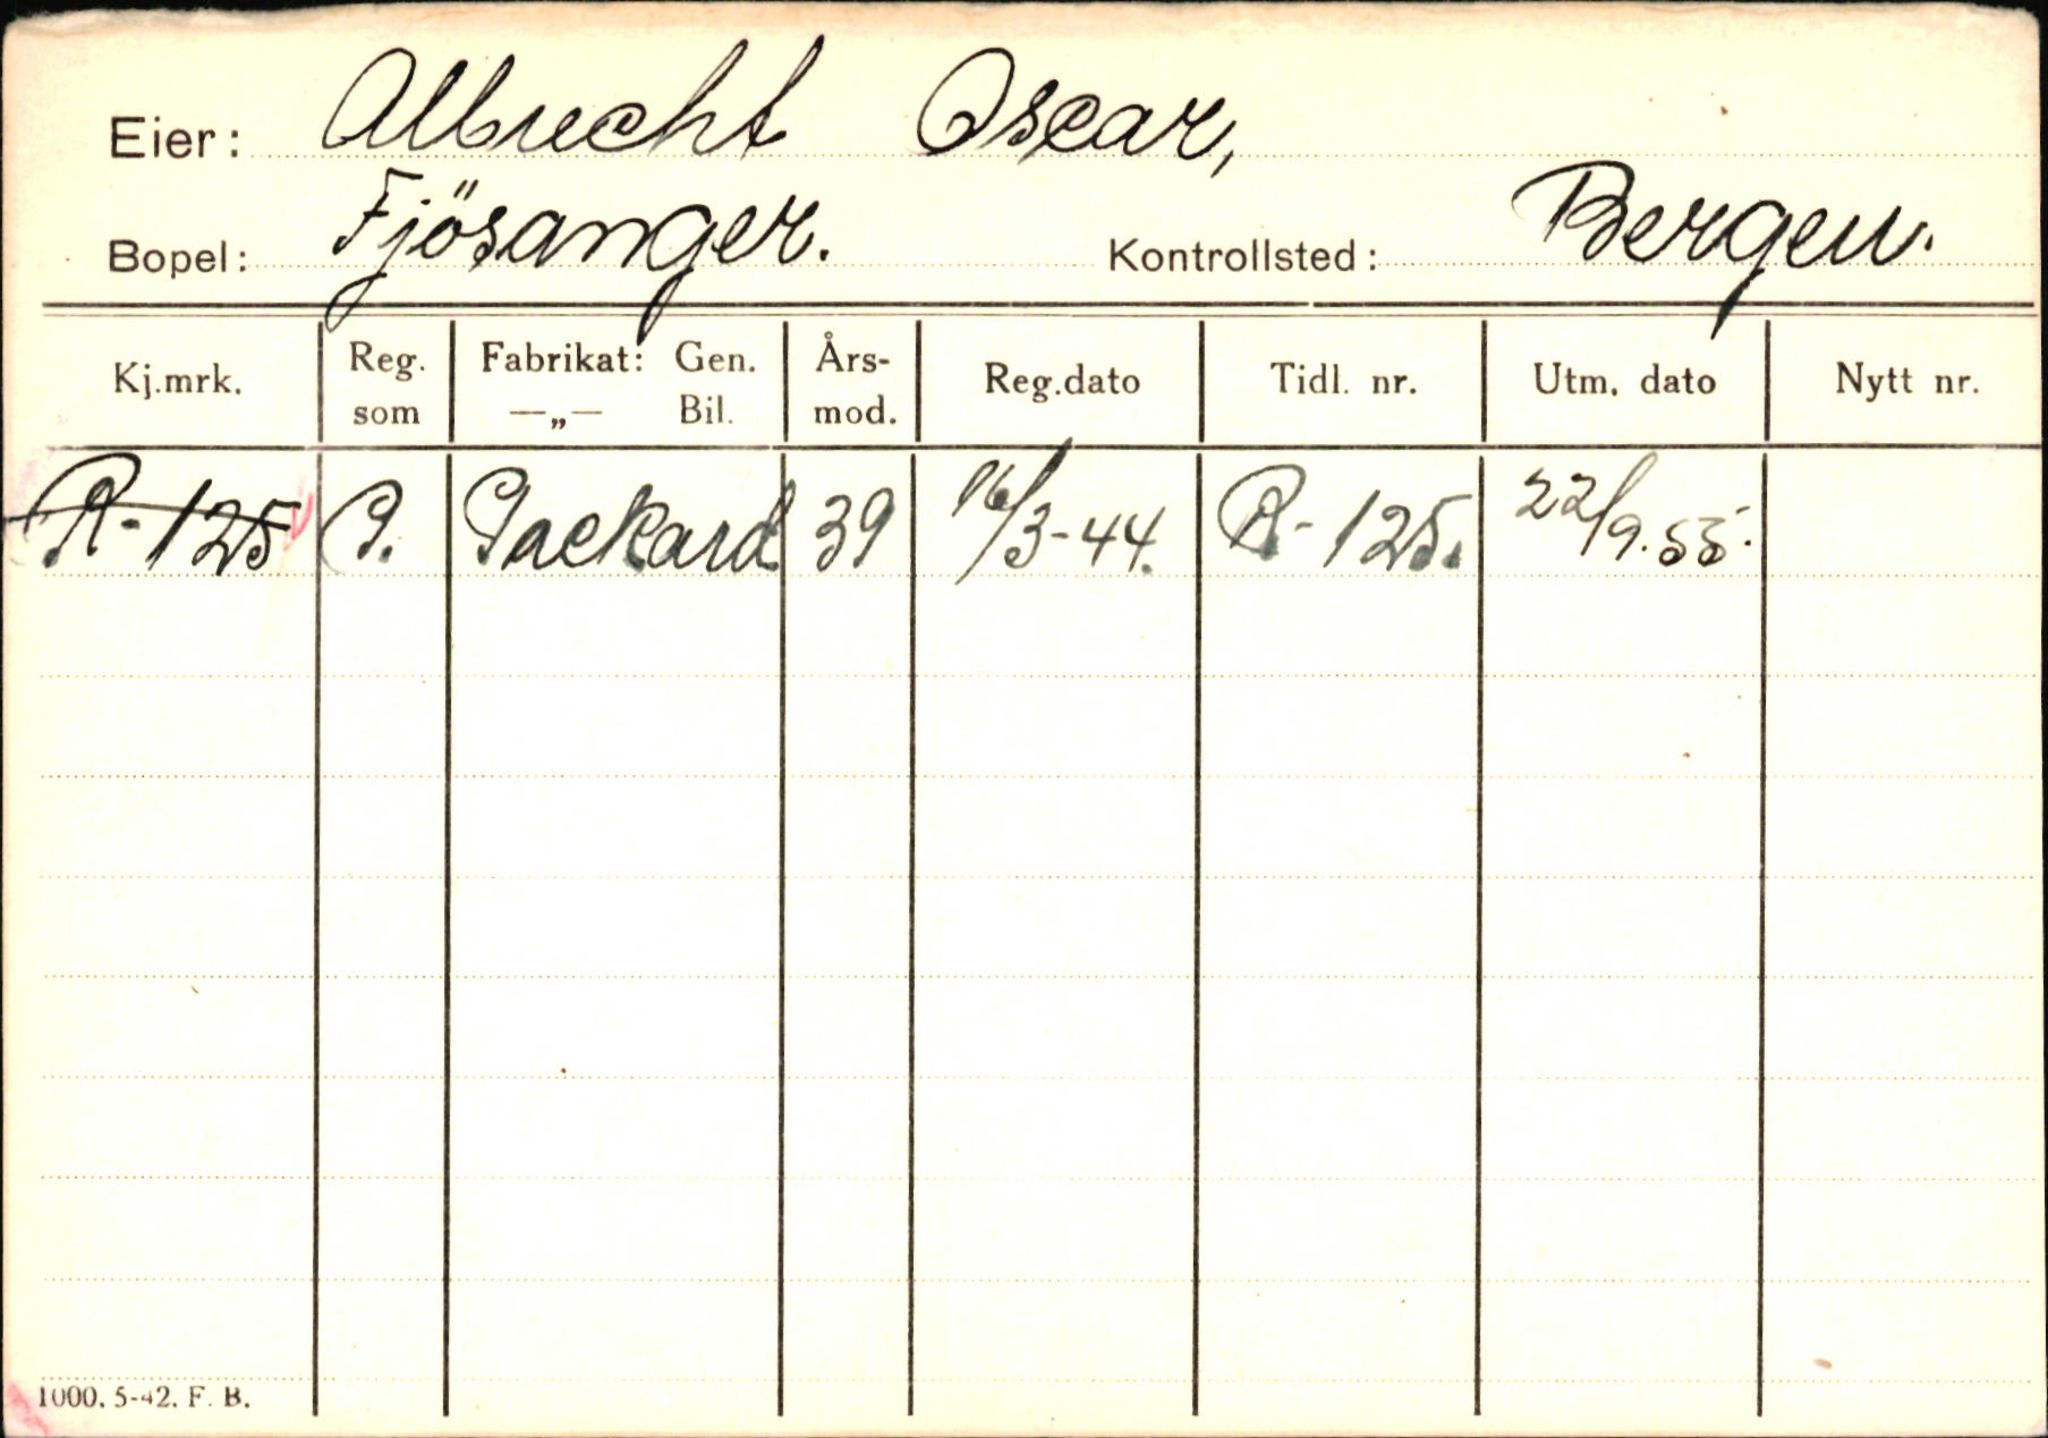 Eier: Albrecht Oscar,
Bopel: Fjösanger. Kontrollsted: Bergen.
Kj.mrk. Reg. som Fabrikat: Gen. —„— Bil. Års-mod. Reg.dato Tidl. nr. Utm. dato Nytt nr.
R-125 P. Packard 39 16/3-44. R-125. 22/9.55.
1000. 5-42. F. B.